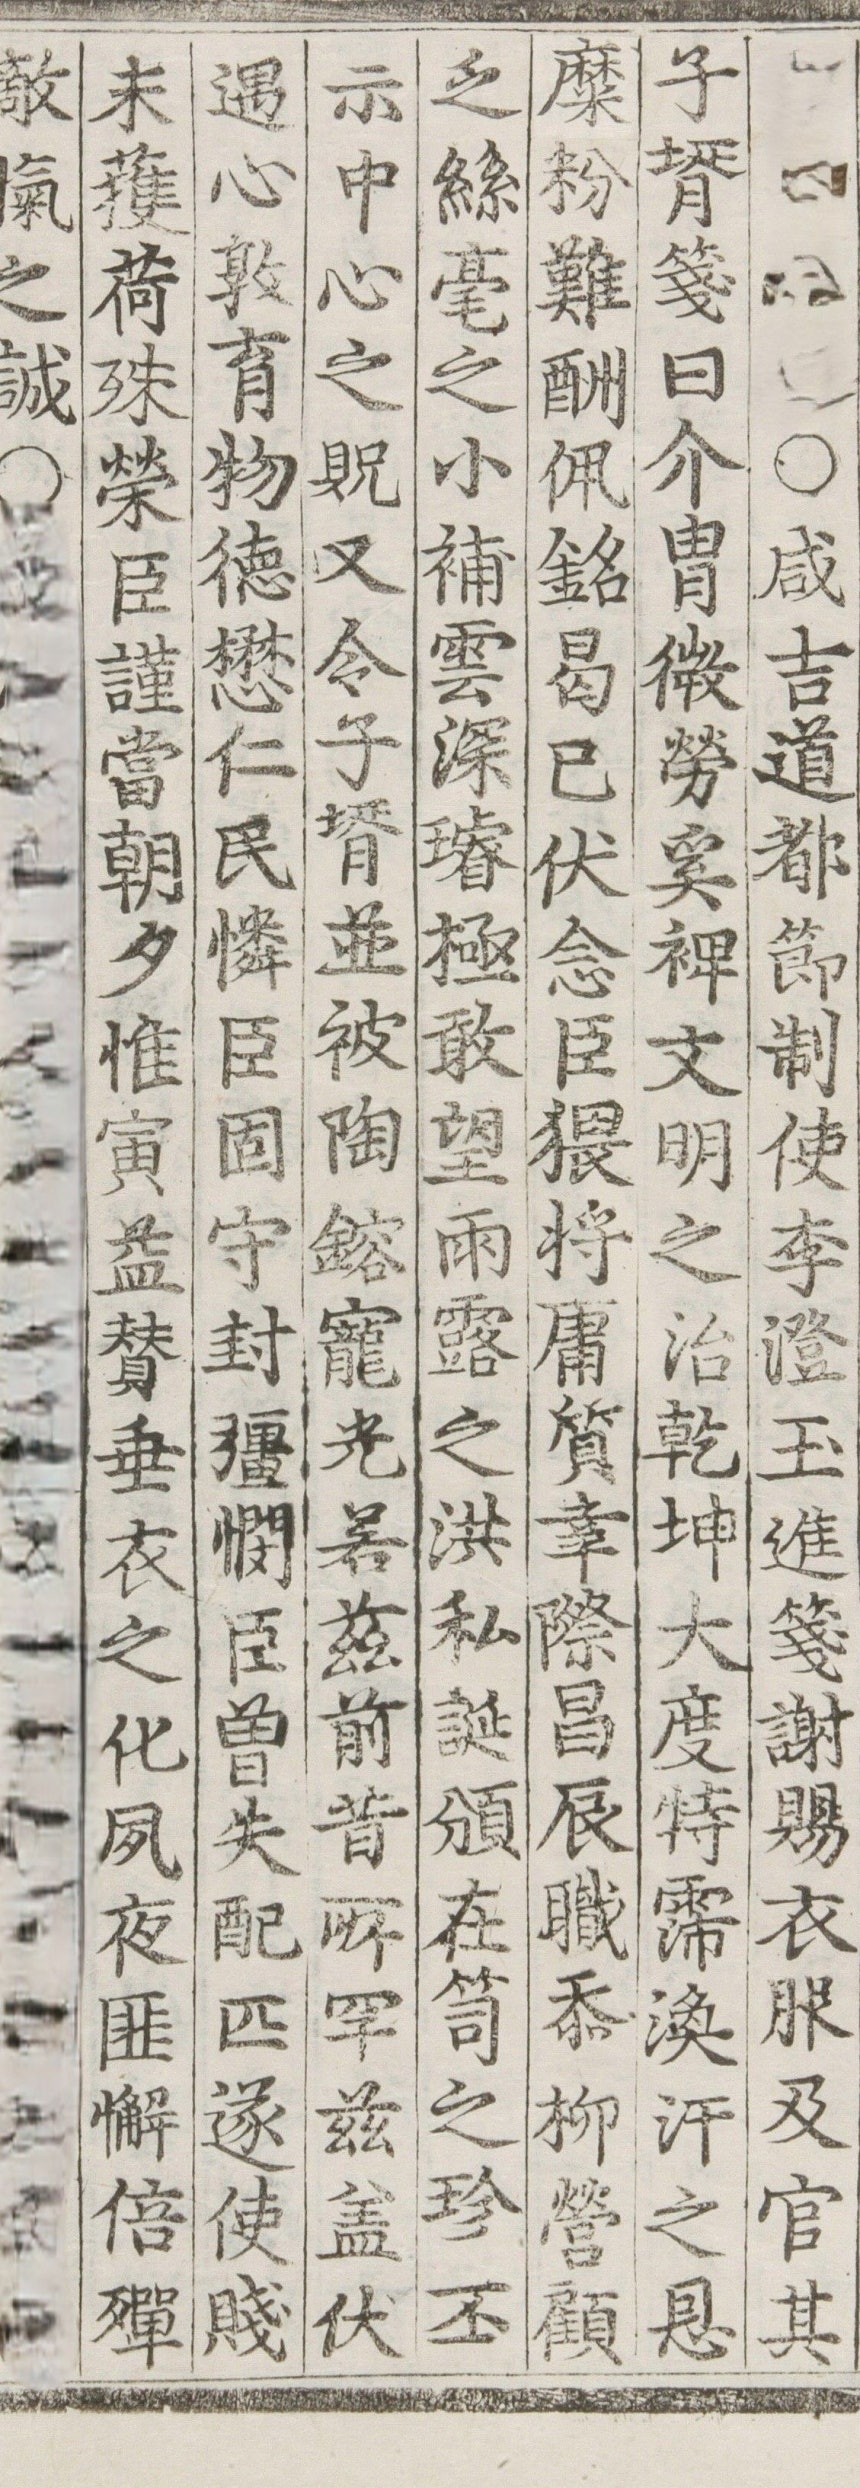 ○咸吉道都節制使李澄玉進箋謝賜衣服及官其
子壻箋曰介冑微勞奚裨文明之治乾坤大度特霈渙汗之恩
糜粉難酬佩銘曷已伏念臣猥將庸質幸際昌辰職忝柳營顧
乏絲毫之小補雲深璿極敢望雨露之洪私誕頒在笥之珍丕
示中心之貺又令子壻並被陶鎔寵光若玆前昔所罕玆盖伏
遇心敦育物德懋仁民憐臣固守封疆憫臣曾失配匹遂使賤
未蒦荷殊榮臣謹當朝夕惟寅益贊垂衣之化夙夜匪懈倍殫
敵愾之誠○